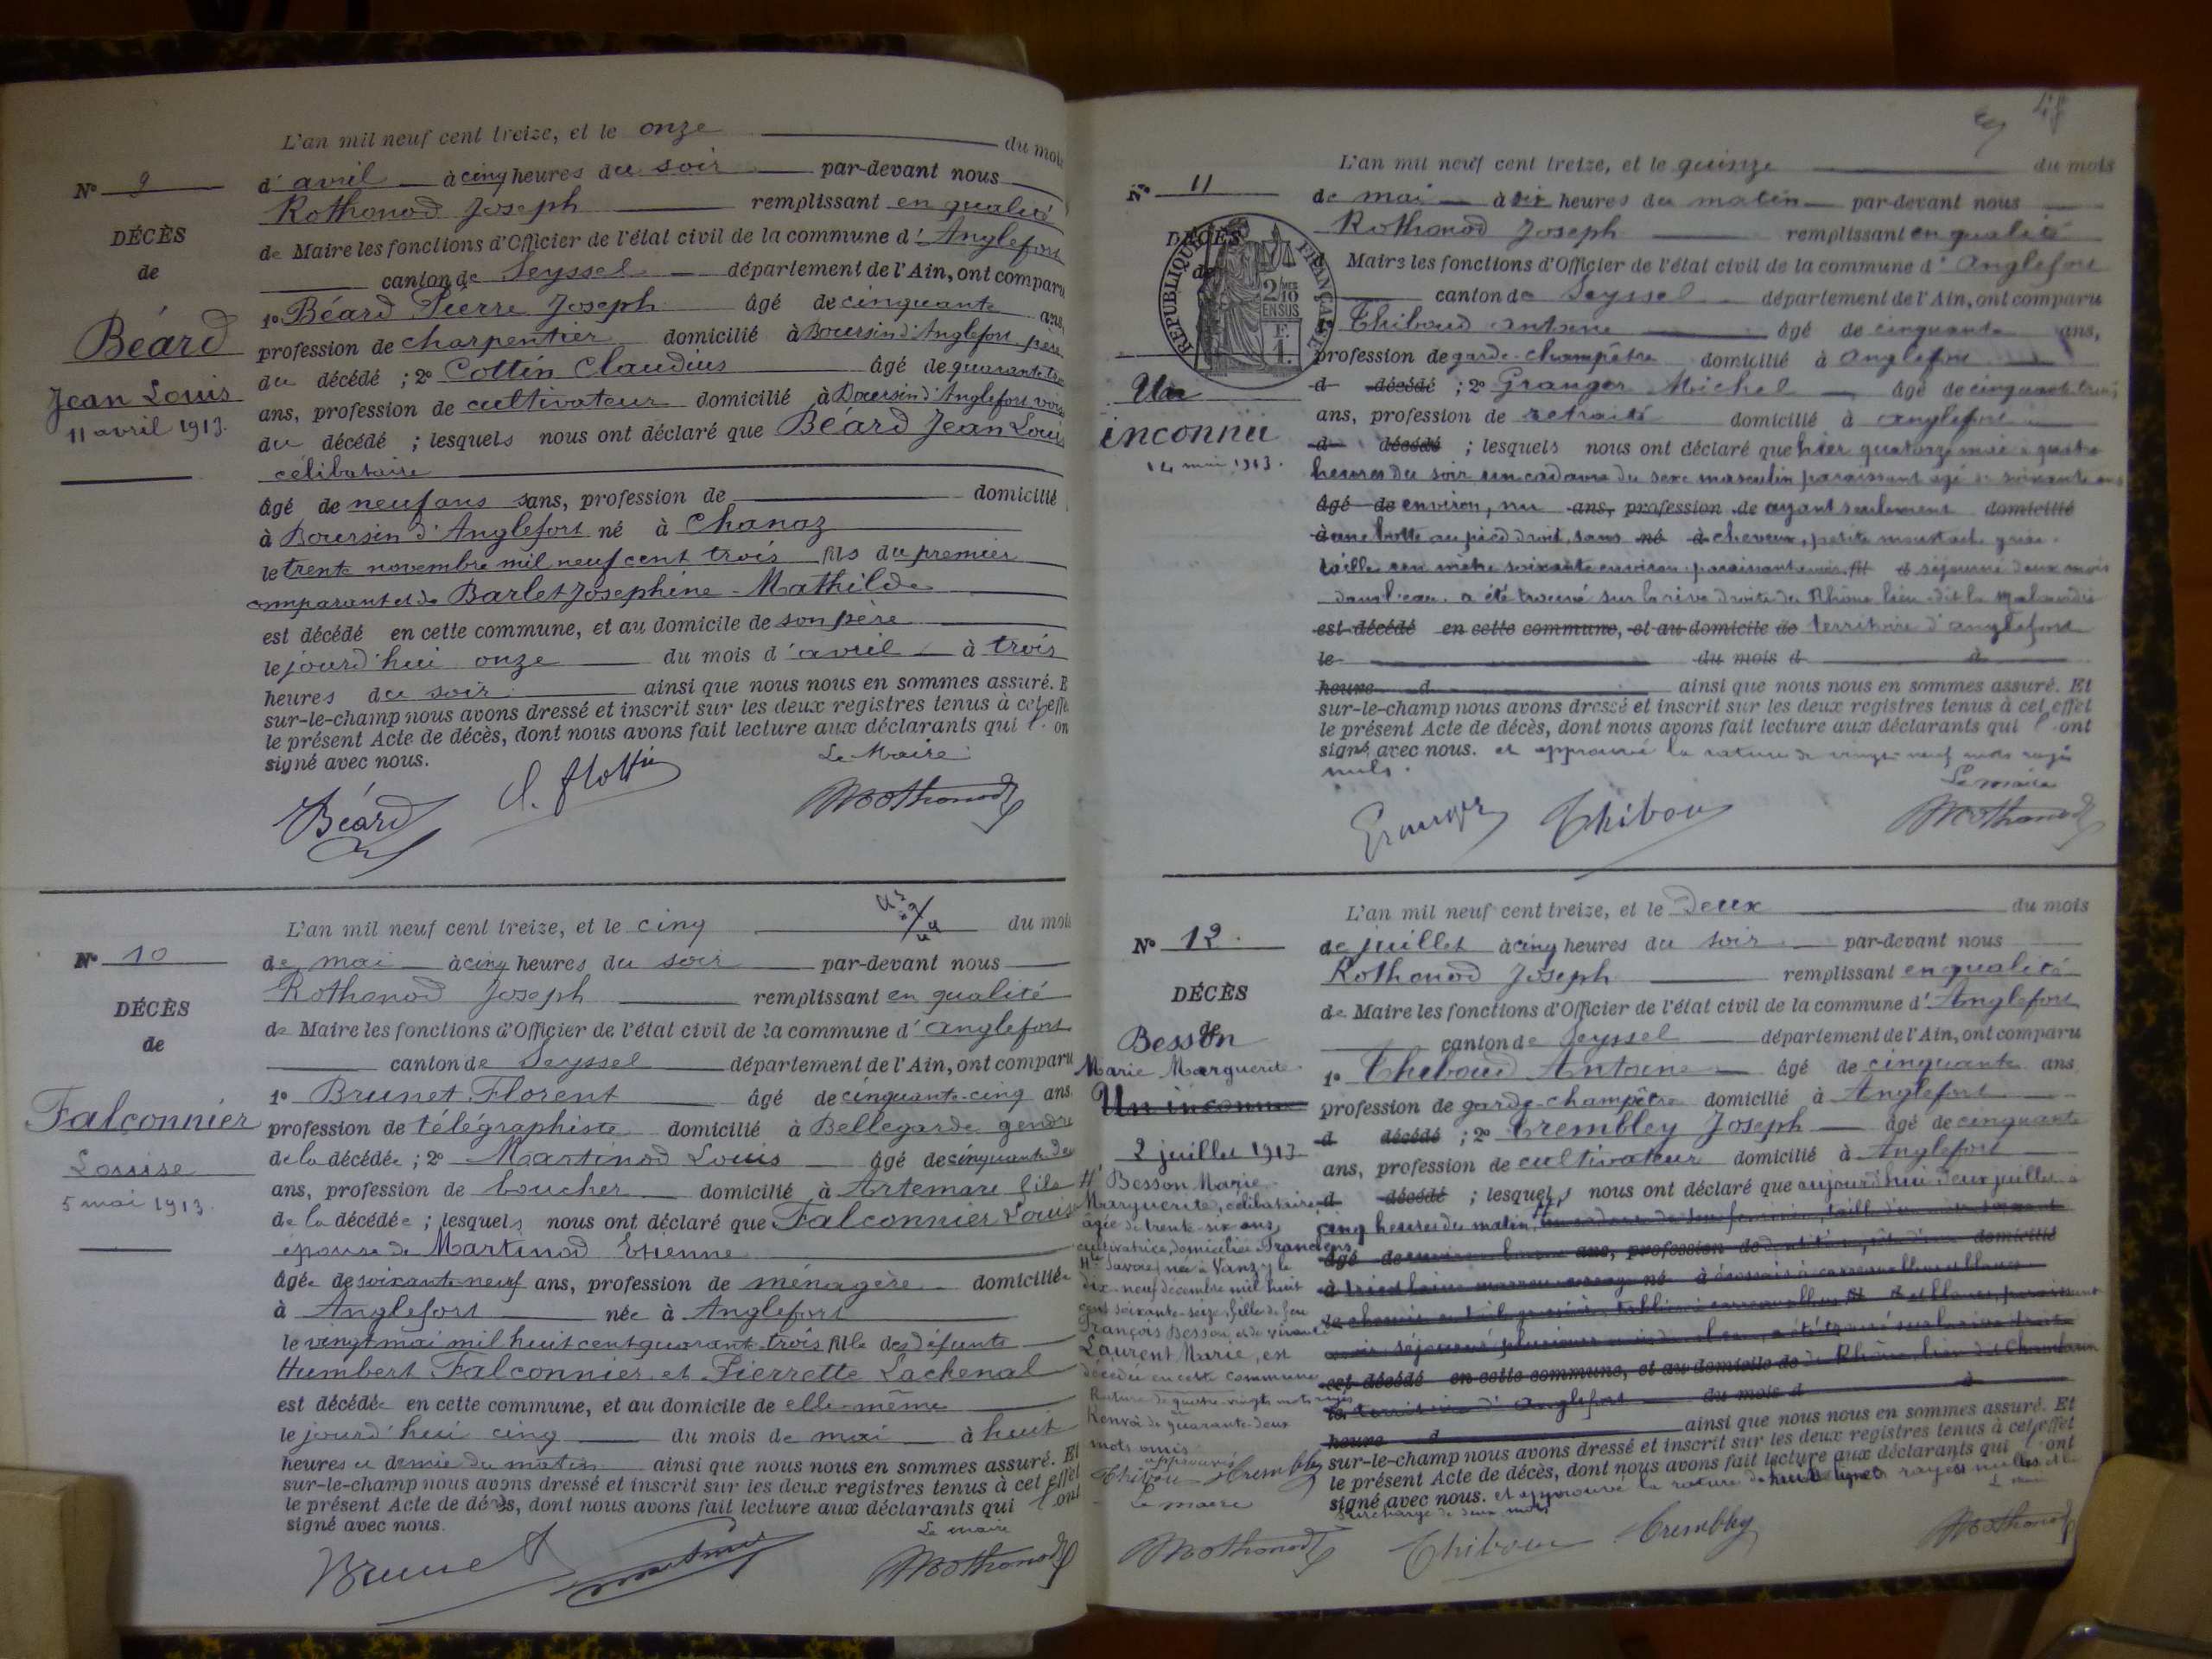 L'an mil neuf cent treize, et le onze du mois
N° 9
d'avril à cinq heures du soir par-devant nous
Rothonod Joseph remplissant en qualité
DÉCÈS
de Maire les fonctions d'Officier de l'état civil de la commune d'Anglefort
de
canton de Seyssel département de l'Ain, ont comparu
1° Béard Pierre Joseph âgé de cinquante ans,
Béard
profession de charpentier domicilié à Boursin d'Anglefort père
du décédé ; 2° Cottin Claudius âgé de quarante
Jean Louis
ans, profession de cultivateur domicilié à Boursin d'Anglefort
11 avril 1913.
du décédé ; lesquels nous ont déclaré que Béard Jean Louis
célibataire
âgé de neuf ans sans, profession de domicilié
à Boursin d'Anglefort né à Chanaz
le trente novembre mil neuf cent trois fils du premier
comparant et de Barlet Josephine Mathilde
est décédé en cette commune, et au domicile de son père
le jourd'hui onze du mois d'avril à trois
heures du soir ainsi que nous nous en sommes assuré. E
sur-le-champ nous avons dressé et inscrit sur les deux registres tenus à cet effe
le présent Acte de décès, dont nous avons fait lecture aux déclarants qui l'on
signé avec nous.
Le Maire
Béard Rothonod
L'an mil neuf cent treize, et le cinq du mois
N° 10
de mai à cinq heures du soir par-devant nous
Rothonod Joseph remplissant en qualité
DÉCÈS
de Maire les fonctions d'Officier de l'état civil de la commune d'Anglefort
de
canton de Seyssel département de l'Ain, ont comparu
1° Brunet Florent âgé de cinquante-cinq ans
Falconnier
profession de télégraphiste domicilié à Bellegarde gendre
de la décédée ; 2° Martinod Louis âgé de cinquante
Louise
ans, profession de boucher domicilié à Artemare fils
5 mai 1913.
de la décédée ; lesquels nous ont déclaré que Falconnier Louise
épouse de Martinod Etienne
âgée de soixante-neuf ans, profession de ménagère domiciliée
à Anglefort née à Anglefort
le vingt mai mil huit cent quarante trois fille des défunts
Humbert Falconnier et Pierrette Lachenal
est décédée en cette commune, et au domicile de elle-même
le jourd'hui cinq du mois de mai à huit
heures et demie du matin ainsi que nous nous en sommes assuré. Et
sur-le-champ nous avons dressé et inscrit sur les deux registres tenus à cet effet
le présent Acte de décès, dont nous avons fait lecture aux déclarants qui l'ont
signé avec nous.
Le maire
Brunet Martinod Rothonod
48
L'an mil neuf cent treize, et le quinze du mois
N° 11
de mai à six heures du matin par-devant nous
Rothonod Joseph remplissant en qualité
DÉCÈS
d Maire les fonctions d'Officier de l'état civil de la commune d'Anglefort
de
RÉPUBLIQUE FRANÇAISE
2/10 EN SUS
canton de Seyssel département de l'Ain, ont comparu
Thiboud Antoine âgé de cinquante ans,
profession de garde-champêtre domicilié à Anglefort
Un
d décédé ; 2° Granger Michel âgé de cinquante trois
ans, profession de retraité domicilié à Anglefort
inconnu
d décédé ; lesquels nous ont déclaré que hier quatorze mai à quatre
14 mai 1913.
heures du soir un cadavre du sexe masculin paraissant âgé de soixante ans
âgé de environ, nu ans, profession de ayant seulement domicilié
à une botte au pied droit, sans né à cheveux, petite moustache grise.
taille un mètre soixante environ paraissant avoir fil d séjourné deux mois
dans l'eau a été trouvé sur la rive droite du Rhône lieu-dit la
est décédé en cette commune, et au domicile de territoire d'Anglefort
le du mois d à
heure d ainsi que nous nous en sommes assuré. Et
sur-le-champ nous avons dressé et inscrit sur les deux registres tenus à cet effet
le présent Acte de décès, dont nous avons fait lecture aux déclarants qui l'ont
signé avec nous. et approuvé la rature de vingt-neuf mots rayés
nuls.
Le maire
Granger Thiboud Rothonod
L'an mil neuf cent treize, et le deux du mois
N° 12.
de juillet à cinq heures du soir par-devant nous
Rothonod Joseph remplissant en qualité
DÉCÈS
de Maire les fonctions d'Officier de l'état civil de la commune d'Anglefort
de
Besson
canton de Seyssel département de l'Ain, ont comparu
Marie Marguerite
1° Thiboud Antoine âgé de cinquante ans
Un inconnu
profession de garde-champêtre domicilié à Anglefort
d décédé ; 2° Trembley Joseph âgé de cinquante
2 juillet 1913
ans, profession de cultivateur domicilié à Anglefort
d décédé ; lesquels nous ont déclaré que aujourd'hui deux juillet à
cinq heures du matin
âgé de ans, profession de domicilié
à né à
est décédé en cette commune, et au domicile de du Rhône lieu dit
le territoire d'Anglefort du mois d à
heure d ainsi que nous nous en sommes assuré. Et
sur-le-champ nous avons dressé et inscrit sur les deux registres tenus à cet effet
le présent Acte de décès, dont nous avons fait lecture aux déclarants qui l'ont
signé avec nous. et approuvé la rature de huit lignes rayées nulles et la
surcharge de deux mots
Thiboud Trembley Rothonod
Besson Marie
Marguerite, célibataire
âgée de trente-six ans,
cultivatrice, domiciliée à Franclens
Hte Savoie, née à Vanzy le
dix-neuf décembre mil huit
cent soixante-seize, fille de feu
François Besson et de vivante
Laurent Marie, est
décédée en cette commune
Rature de quatre-vingts mots rayés
Renvoi de quarante-deux
mots omis
approuvés
Thiboud Trembley
Le maire
Rothonod